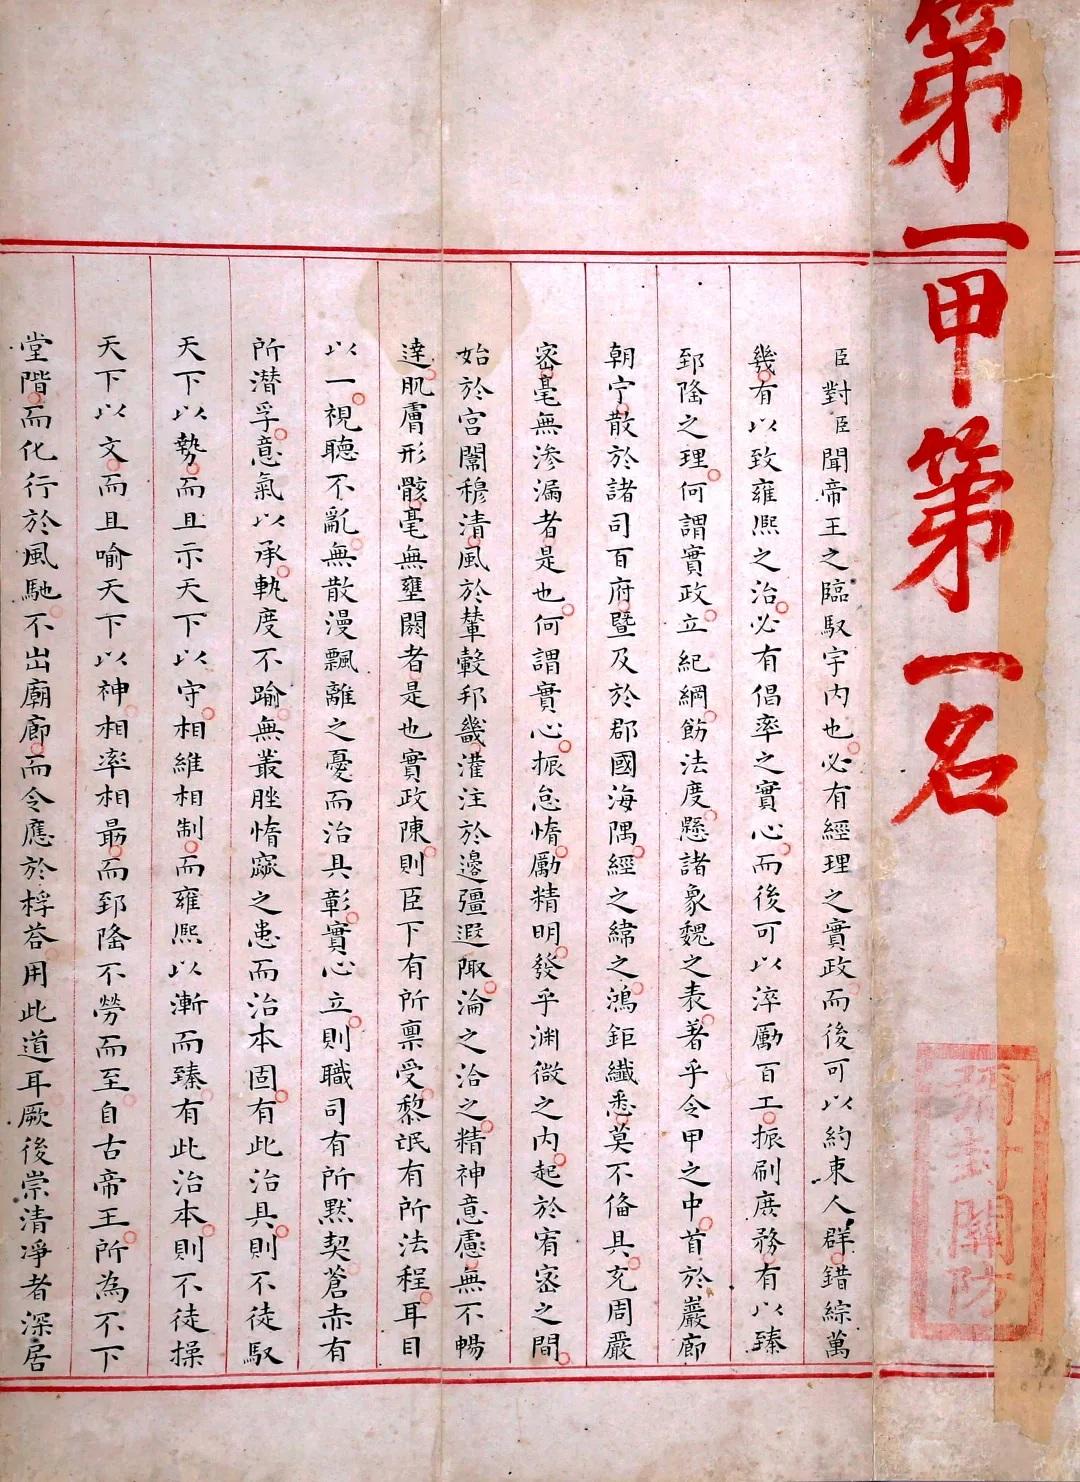 第一甲第一名
彌封關防
臣對臣聞帝王之臨馭宇内也必有經理之實政而後可以約束人群錯綜萬
幾有以致雍熙之治必有倡率之實心而後可以淬勵百工振刷庶務有以臻
郅隆之理何謂實政立紀綱飭法度懸諸象魏之表著乎令甲之中首於巖廊
朝宁散於諸司百府暨及於郡國海隅經之緯之鴻鉅纖悉莫不俻具充周嚴
宻毫無滲漏者是也何謂實心振怠惰勵精明發乎渊微之内起於宥宻之間
始於宫闈穆清風於輦轂邦畿灌注於邊疆遐陬淪之洽之精神意慮無不暢
達肌膚形骸毫無壅閼者是也實政陳則臣下有所禀受黎氓有所法程耳目
以一視聽不亂無散漫飄離之憂而治具彰實心立則職司有所黙契蒼赤有
所潜孚意氣以承軌度不踰無叢脞惰窳之患而治本固有此治具則不徒馭
天下以勢而且示天下以守相維相制而雍熙以漸而臻有此治本則不徒操
天下以文而且喻天下以神相率相朂而郅隆不勞而至自古帝王所為不下
堂階而化行於風馳不出廟廊而令應於桴荅用此道耳厥後崇清凈者深居